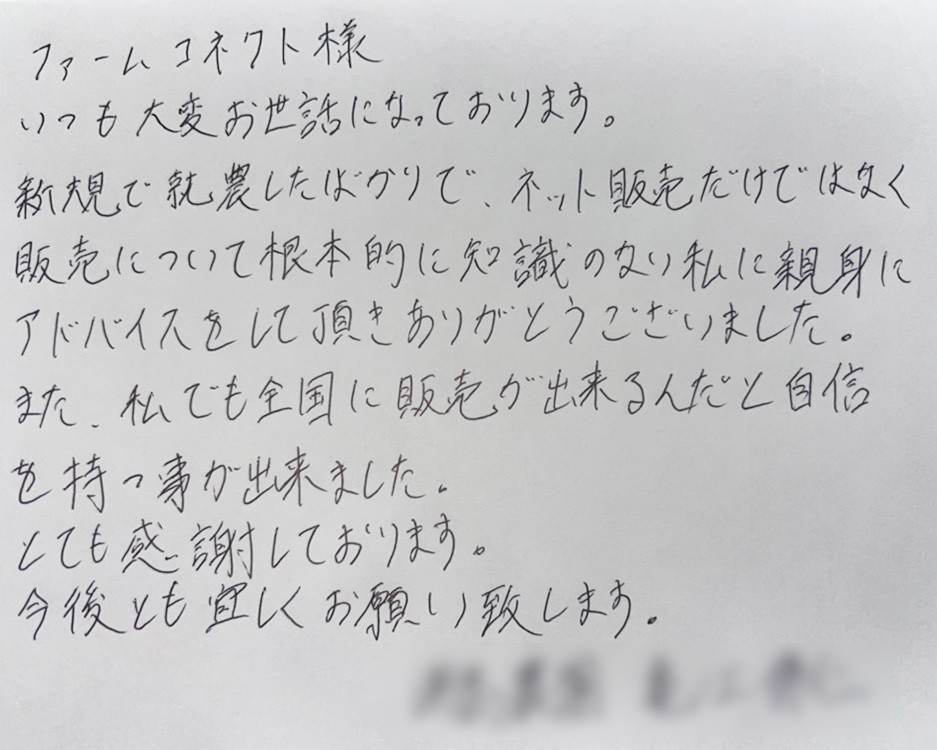 ファームコネクト様
いつも大変お世話になっております。
新規で就農したばかりで、ネット販売だけではなく
販売について根本的に知識のない私に親身に
アドバイスをして頂きありがとうございました。
また、私でも全国に販売が出来るんだと自信
を持つ事が出来ました。
とても感謝しております。
今後とも宜しくお願い致します。